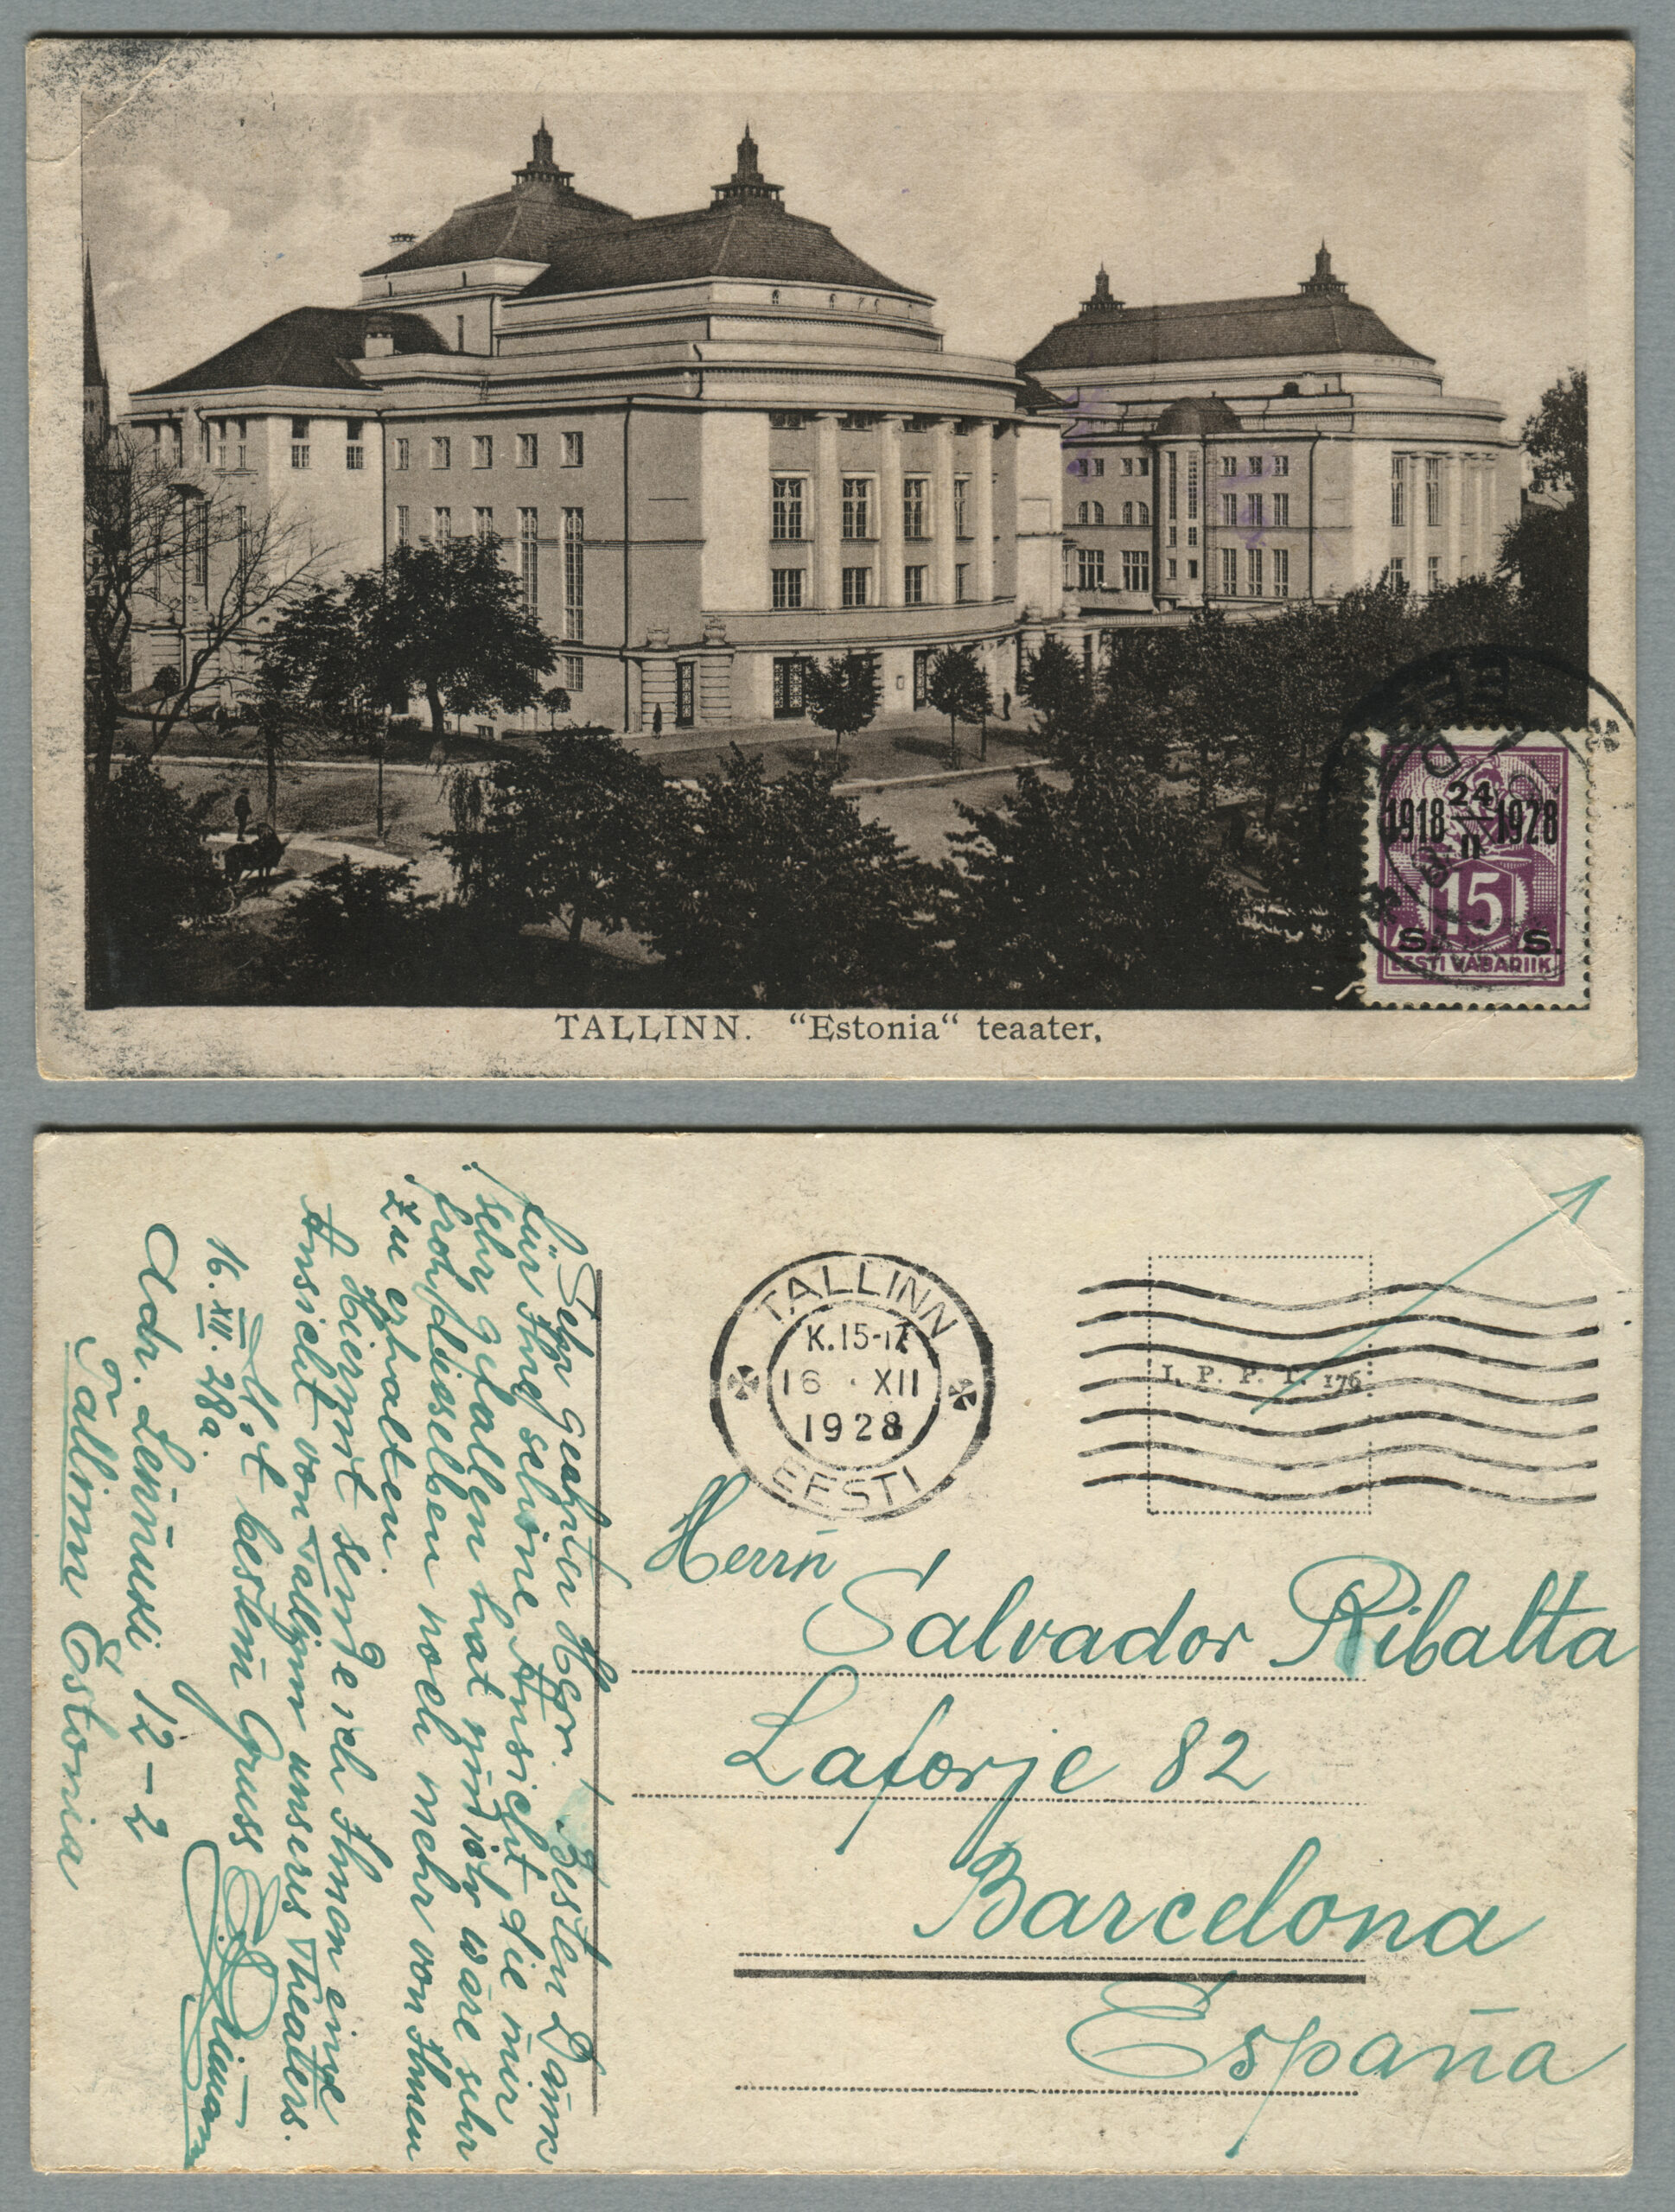 1918 24 II 1928
15
S. S.
EESTI VABARIIK
TALLINN. “Estonia“ teaater.
TALLINN
K.15-17
16 · XII
1928
EESTI
I. P. P. T. 176
Herrn
Salvador Ribalta
Laforje 82
Barcelona
España
Sehr geehrter Herr! Besten Dank
für Ihre schöne Ansicht die mir
sehr gefallen hat und ich wäre sehr
froh dieselben noch mehr von Ihnen
zu erhalten.
Hiermit sende ich Ihnen eine
Ansicht von Tallinn unseres Theaters.
Mit bestem Gruss
16. XII. 28a.
Adr. 12-2
Tallinn Estonia